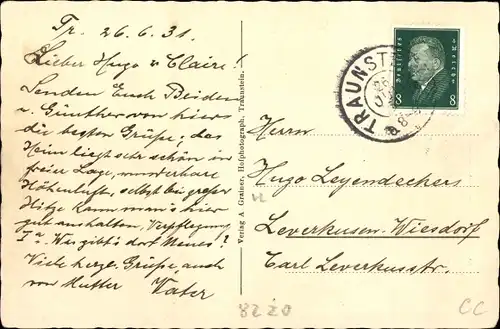 Tr. 26.6.31.
Lieber Hugo u Claire!
Senden Euch Beiden
u. Günther von hier
die besten Grüße, das
Heim liegt sehr schön in
freier Lage, wunderbare
Höhenluft, selbst bei großer
Hitze kann man's hier
gut aushalten. Verpflegung
Ia. Was gibt's dort Neues?
Viele herzl. Grüße, auch
von Mutter Vater
Verlag A. Grainer, Hofphotograph, Traunstein.
Deutsches Reich
8 8
TRAUNSTEIN
Herrn
Hugo Leyendeckers
Leverkusen-Wiesdorf
Carl Leverkusstr.
8220
CC